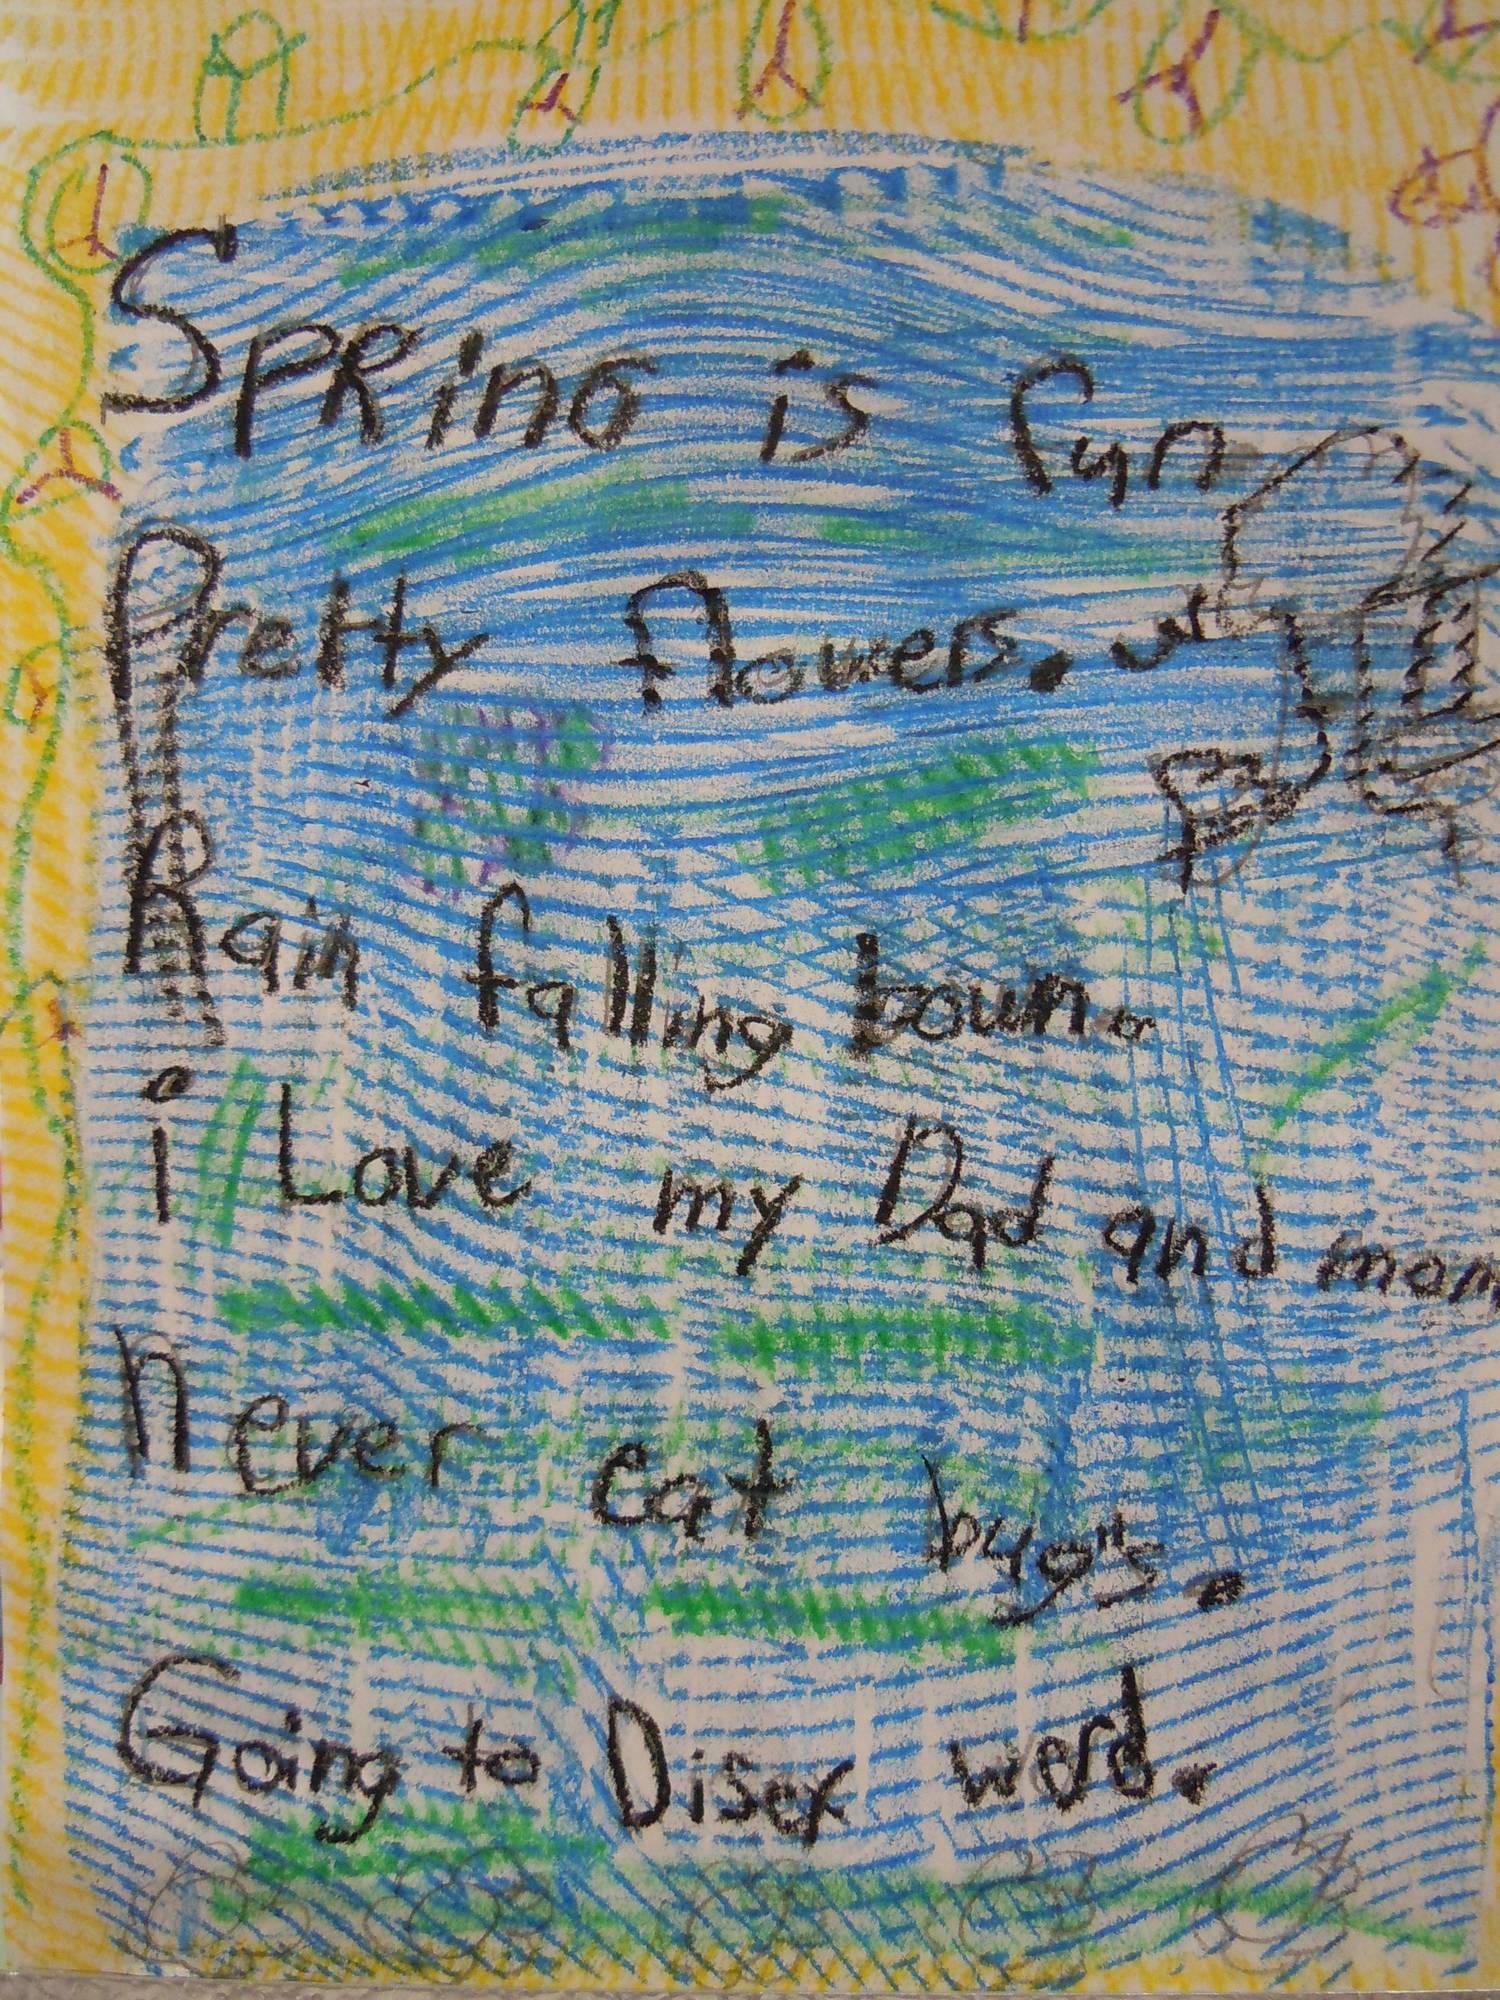 Spring is fun
Pretty flowers.
Rain falling boun.
i Love my Dad and mom
never eat bug"s.
Going to Disey werd.